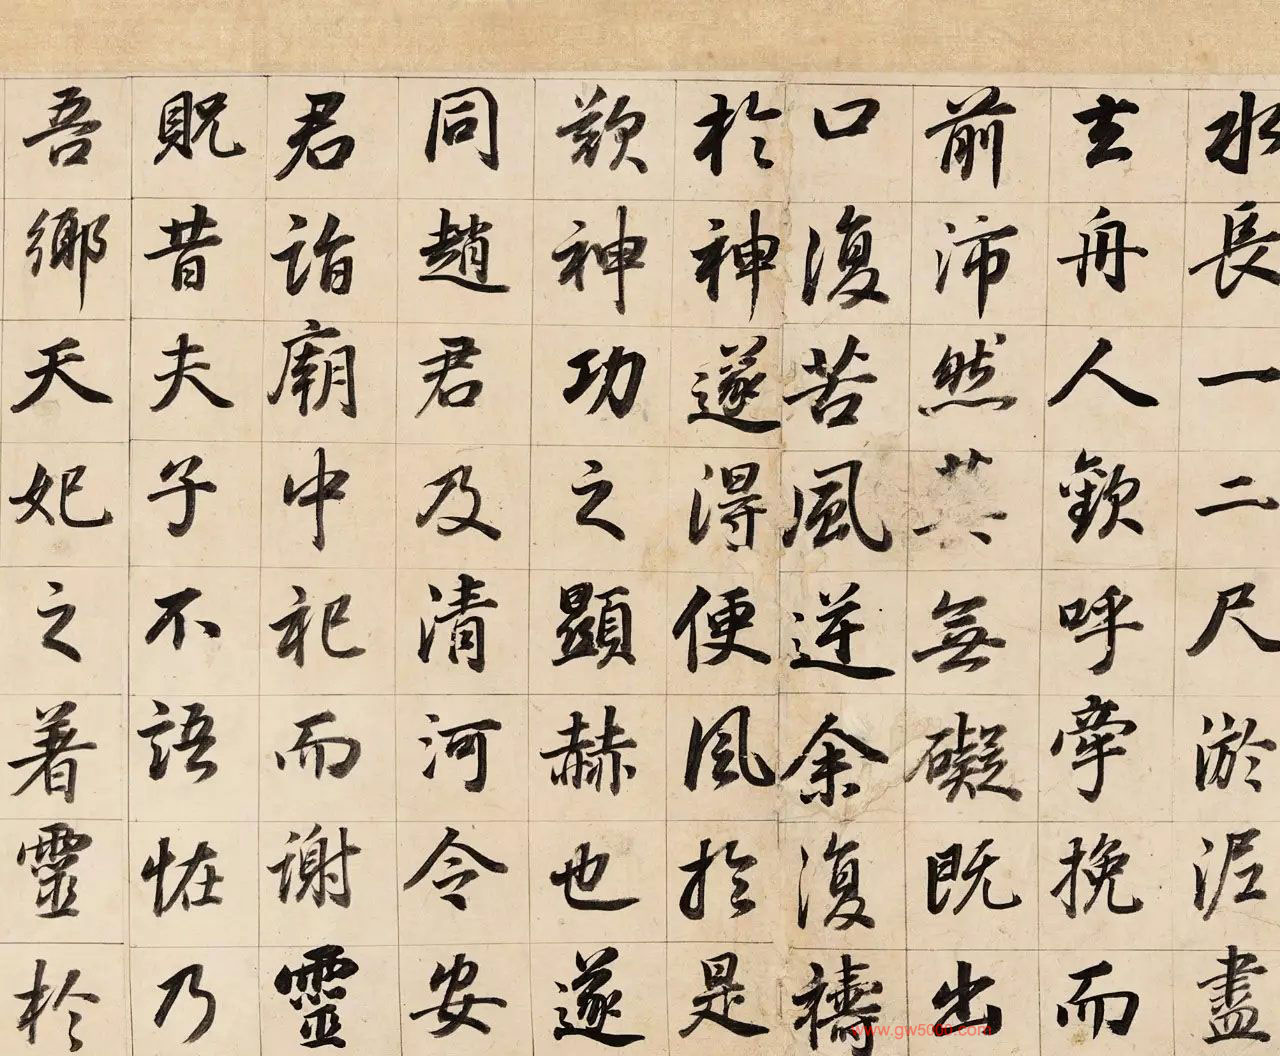 水長一二尺淤泥盡
去舟人歡呼牽挽而
前沛然其無礙既出
口復苦風逆余復禱
於神遂得便風於是
歎神功之顯赫也遂
同趙君及清河令安
君詣廟中祀而謝靈
貺昔夫子不語怪乃
吾鄉天妃之著靈於
www.gw5000.com